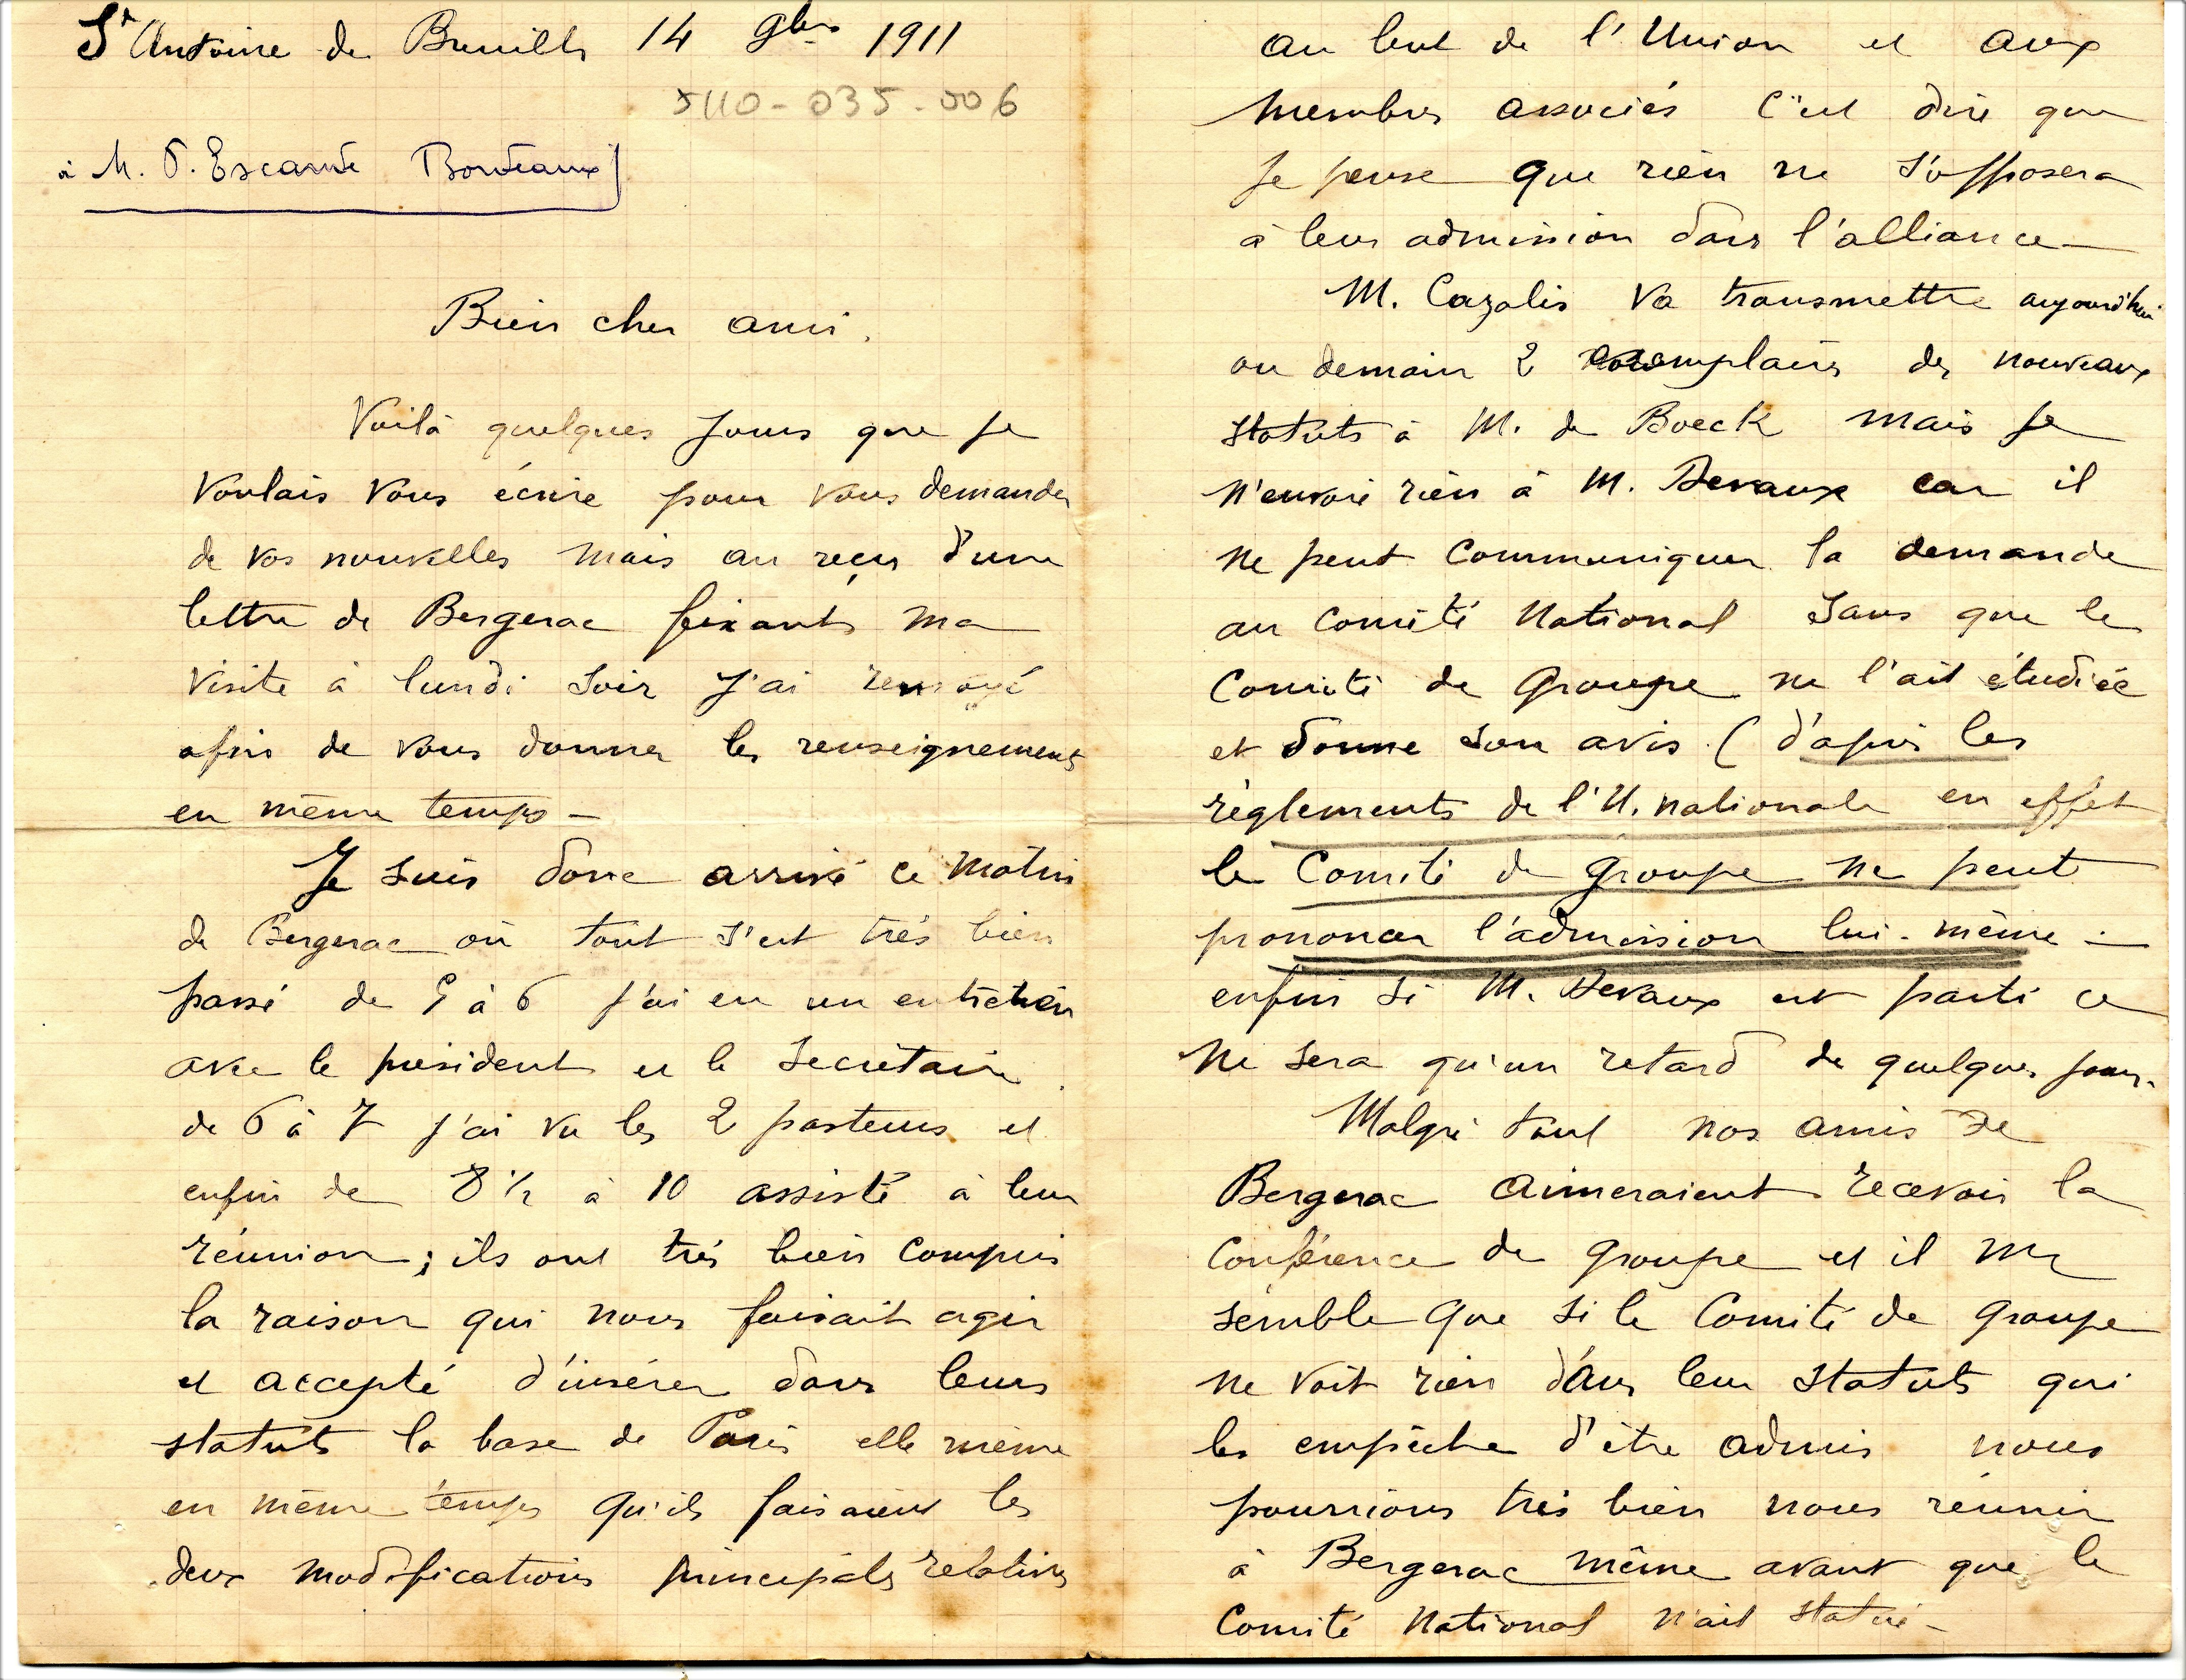 St Antoine de Breuilh 14 9bre 1911
5110-035-006
à M. P. Escande Bordeaux
Bien cher ami,
Voilà quelques jours que je
voulais vous écrire pour vous demander
de vos nouvelles mais au reçu d'une
lettre de Bergerac fixant ma
visite à lundi soir j'ai renvoyé
afin de vous donner les renseignements
en même temps -
Je suis donc arrivé ce matin
de Bergerac où tout s'est très bien
passé de 5 à 6 j'ai eu un entretien
avec le président et le secrétaire
de 6 à 7 j'ai vu les 2 pasteurs et
enfin de 8 1/2 à 10 assisté à leur
réunion ; ils ont très bien compris
la raison qui nous faisait agir
et accepté d'insérer dans leurs
statuts la base de Paris elle même
en même temps qu'ils faisaient les
deux modifications principales relatives
au but de l'Union et aux
membres associés c'est dire que
je pense que rien ne s'opposera
à leur admission dans l'alliance -
M. Cazalis va transmettre aujourd'hui
ou demain 2 exemplaires des nouveaux
statuts à M. de Boeck mais je
n'envoie rien à M. Devaux car il
ne peut communiquer la demande
au comité National sans que le
Comité de Groupe ne l'ait étudiée
et donne son avis (d'après les
règlements de l'U. nationale en effet
le Comité de groupe ne peut
prononcer l'admission lui-même -
enfin si M. Devaux est parti ce
ne sera qu'un retard de quelques jours.
Malgré tout nos amis de
Bergerac aimeraient recevoir la
Conférence de groupe et il me
semble que si le Comité de groupe
ne voit rien dans leur statuts qui
les empêche d'être admis nous
pourrions très bien nous réunir
à Bergerac même avant que le
Comité National n'ait statué -